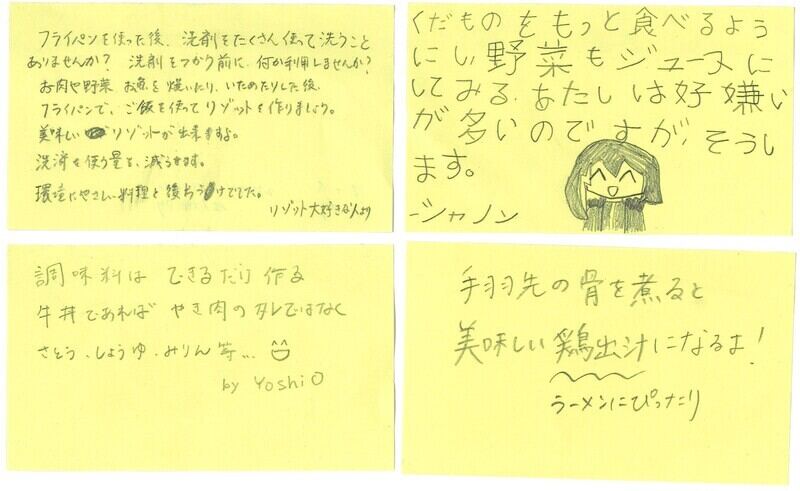 フライパンを使った後、洗剤をたくさん使って洗うこと
ありませんか？ 洗剤をつかう前に、何か利用しませんか？
お肉や野菜 お魚を焼いたり、いためたりした後、
フライパンで、ご飯を使ってリゾットを作りましょう。
美味しい リゾットが出来ますよ。
洗済を使う量も、減らせます。
環境にやさしい料理と後おうけでした。
リゾット大好きな人より
くだものをもっと食べるよう
にい野菜もジュースに
してみる、あたしは好嫌い
が多いのですが、そうし
ます。
-シャノン
調味料は できるだけ 作る
牛丼であれば やき肉のタレではなく
さとう、しょうゆ、みりん等...
by YoshiO
手羽先の骨を煮ると
美味しい鶏出汁になるよ！
ラーメンにぴったり